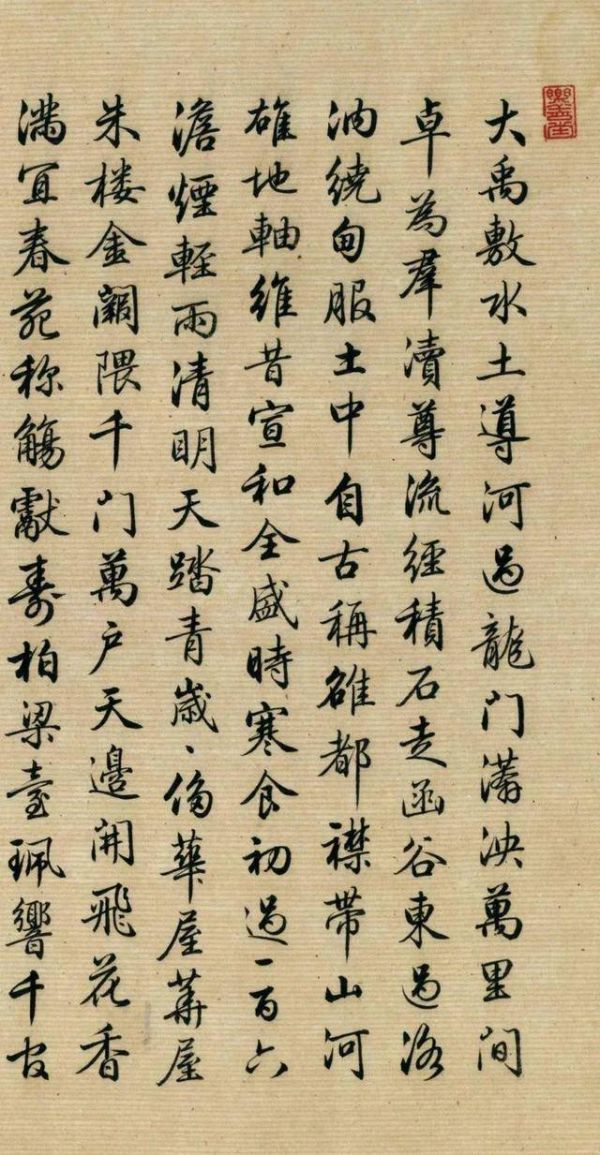 大禹敷水土導河過龍门漭泱萬里间
卓為羣瀆尊流經積石走函谷東過洛
汭繞甸服土中自古稱雄都襟帶山河
雄地軸維昔宣和全盛時寒食初過一百六
澹煙輕雨清明天踏青歲、侈華屋華屋
朱楼金闕隈千门萬户天邊開飛花香
滿宜春苑称觴獻壽柏梁臺珮響千官